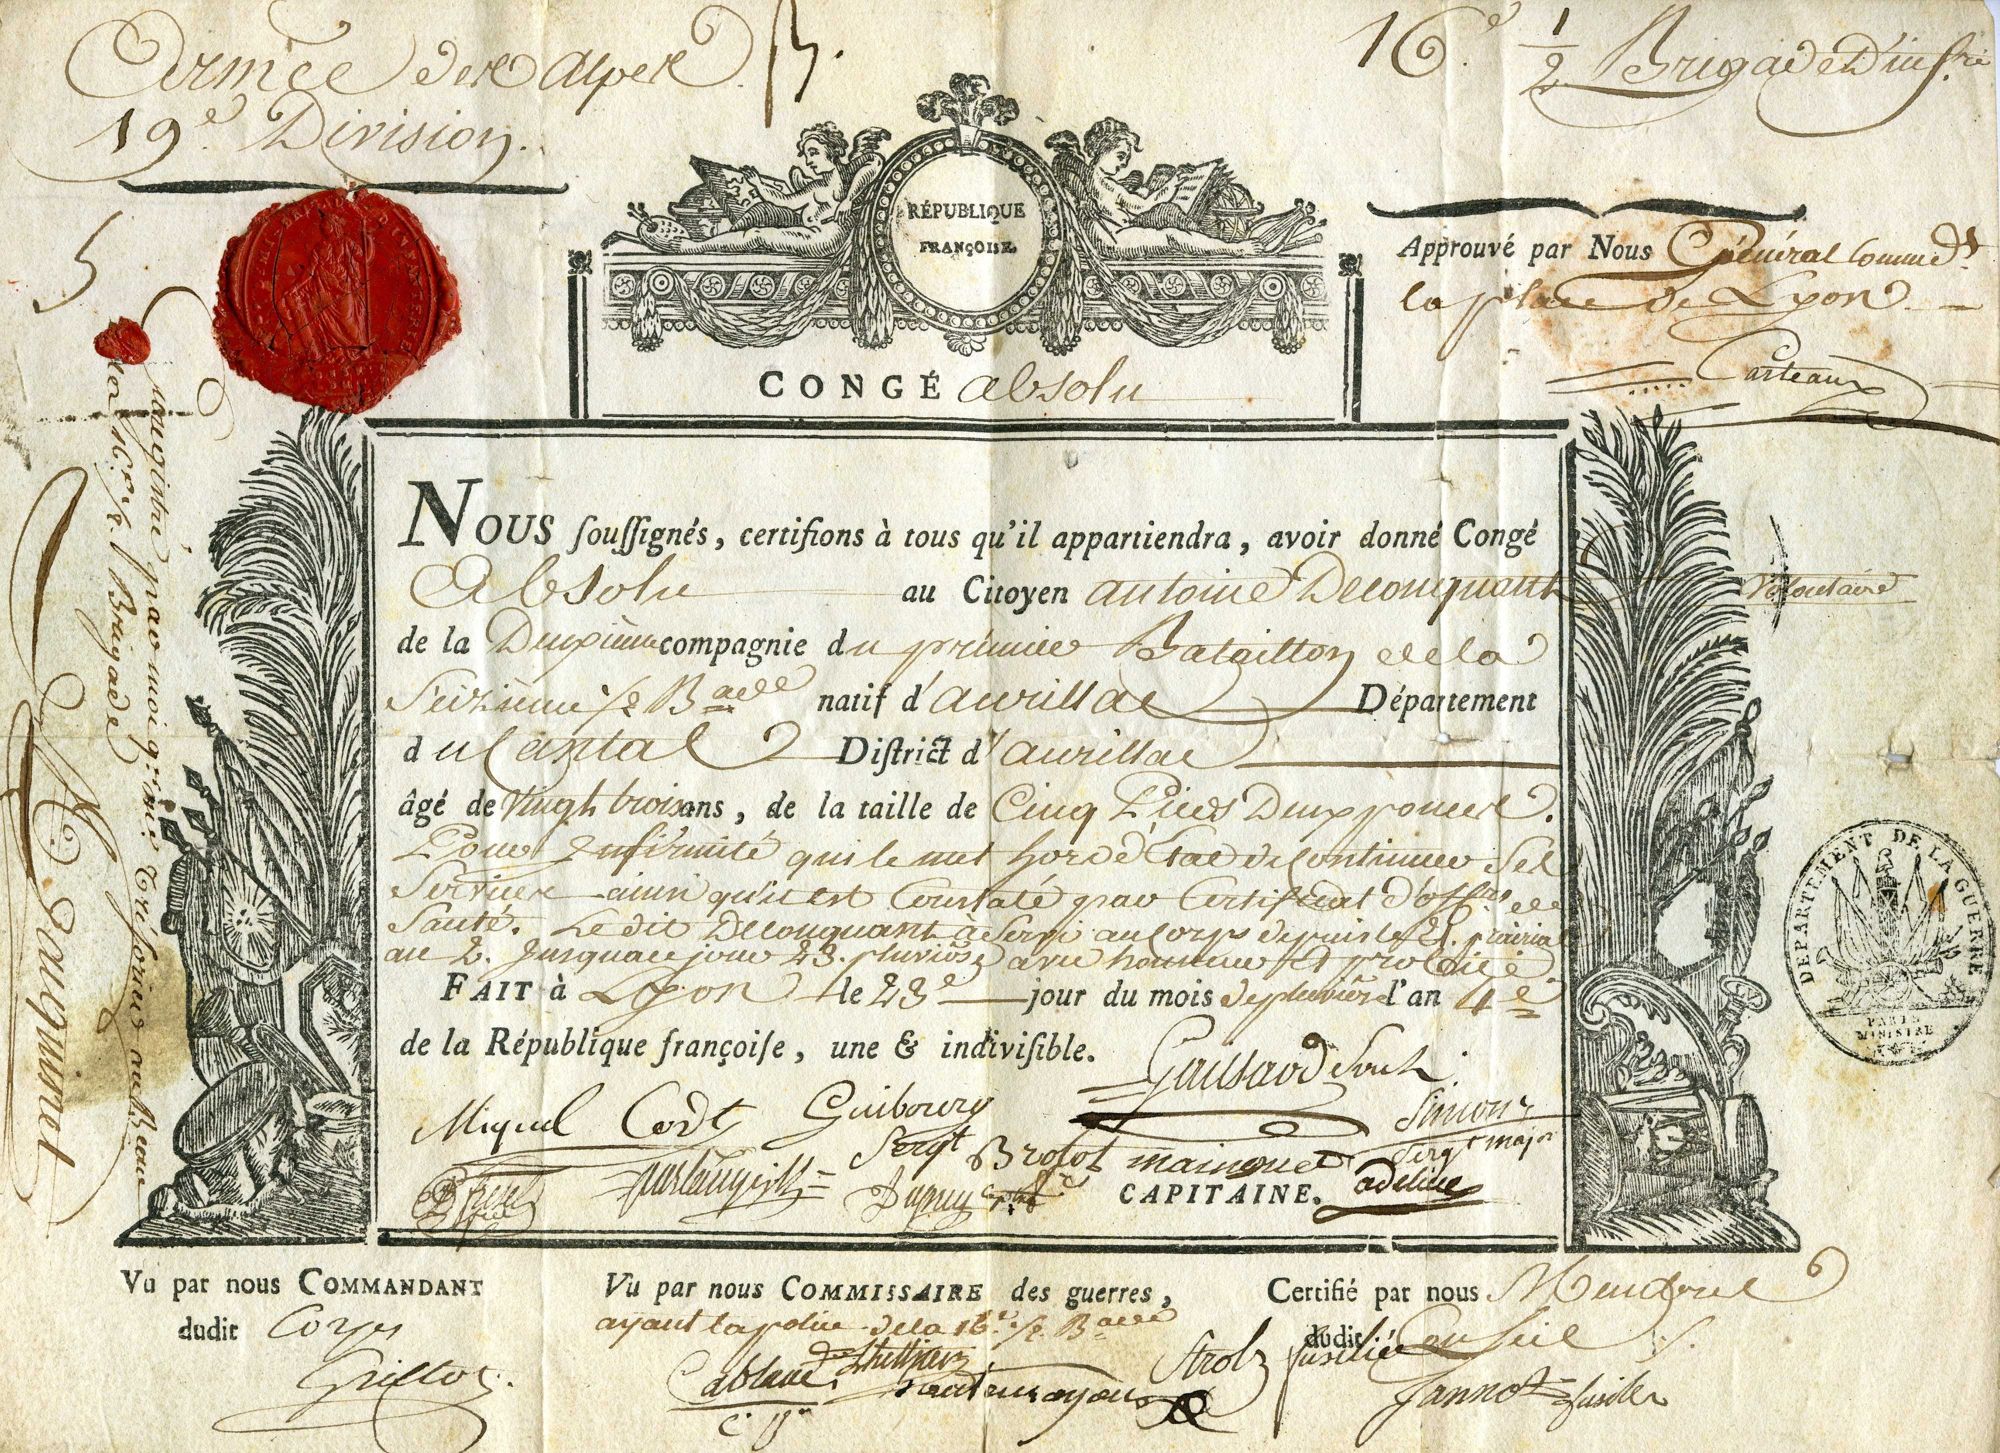 Armée des Alpes
19e Division.
16e 1/2 Brigade D'infrie
RÉPUBLIQUE
FRANÇOISE.
CONGÉ absolu
Approuvé par Nous Général Commdt
la place de Lyon.
Carteaux
NOUS souſſignés, certifions à tous qu'il appartiendra, avoir donné Congé
Absolu au Citoyen antoine Deconquant
Volontaire
de la Deuxieme compagnie du premier Bataillon de la
Seizieme 1/2 Bade natif d'aurillac Département
du Cantal Diſtrict d'aurillac
âgé de Vingt trois ans, de la taille de Cinq Pieds Deux pouces.
Pour Infirmité qui le met hors d'Etat de Continuer Ses
Services ainsi qu'il est Constaté par Certificat d'offers de
Santé. Le dit Deconquant à Servi au Corps depuis le prairial
an 2. Jusqu'ace jour 23. pluviôse avec honneur et probité.
FAIT à Lyon le 23e jour du mois de pluviôse l'an 4e
de la République françoiſe, une & indiviſible.
Miquel Guibourg
Sergt
Simon
Sergt major
Brosot
CAPITAINE. adeline
Dupuy
Vu par nous COMMANDANT
dudit Corps
Grillot.
Vu par nous COMMISSAIRE des guerres,
ayant la police de la 16e 1/2 Bade
Certifié par nous Membres
dudit Conseil
Strolz fusilié
Jannot fusilier
Enregistré par moi qr mre Trésorier au Bureau
de la 16e 1/2 Brigade
DÉPARTEMENT DE LA GUERRE
MINISTRE